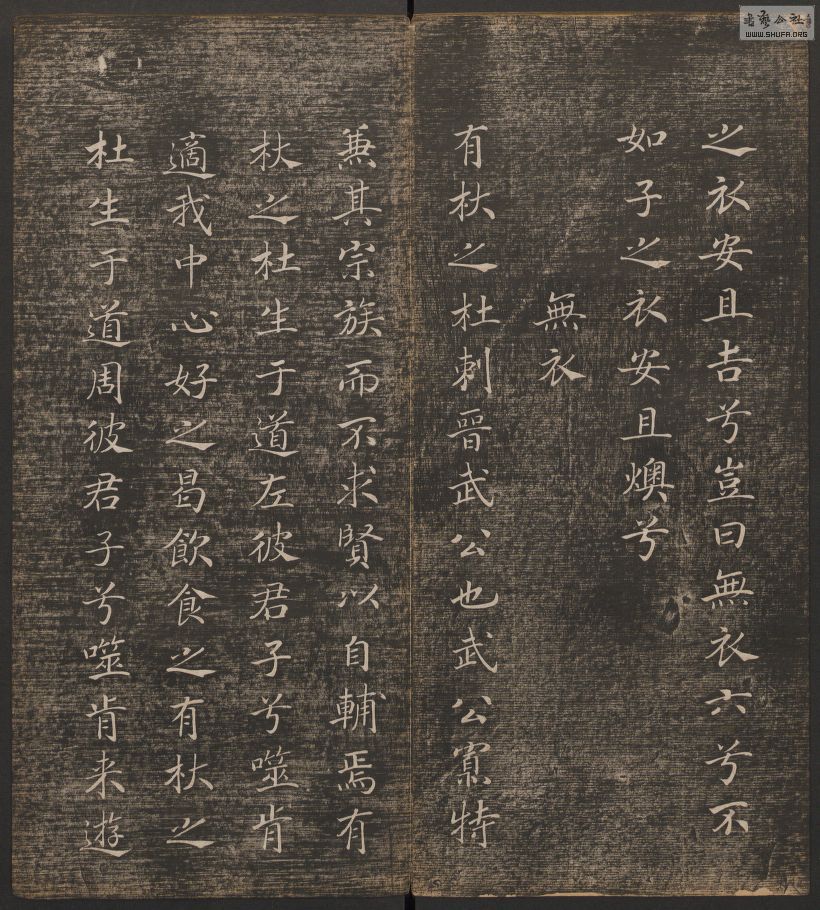 之衣安且吉兮豈曰無衣六兮不
如子之衣安且燠兮
無衣
有杕之杜刺晉武公也武公寡特
兼其宗族而不求賢以自輔焉有
杕之杜生于道左彼君子兮噬肯
適我中心好之曷飲食之有杕之
杜生于道周彼君子兮噬肯来遊
書藝公社
WWW.SHUFA.ORG